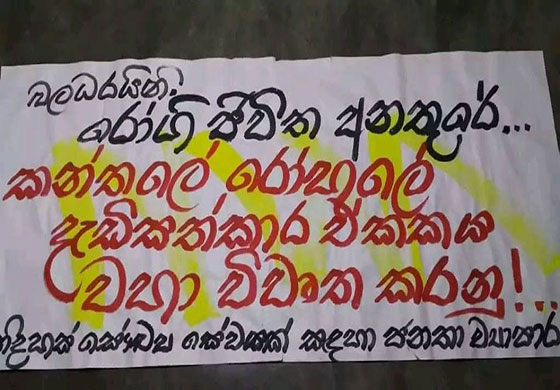 බලධරයිනි.
රෝගී ජීවිත අනතුරේ...
කන්තලේ රෝහලේ
දැඩිසත්කාර ඒකකය
වහා විවෘත කරනු!..
නිදහස් සෞඛ්‍ය සේවයක් සඳහා ජනතා ව්‍යාපාර